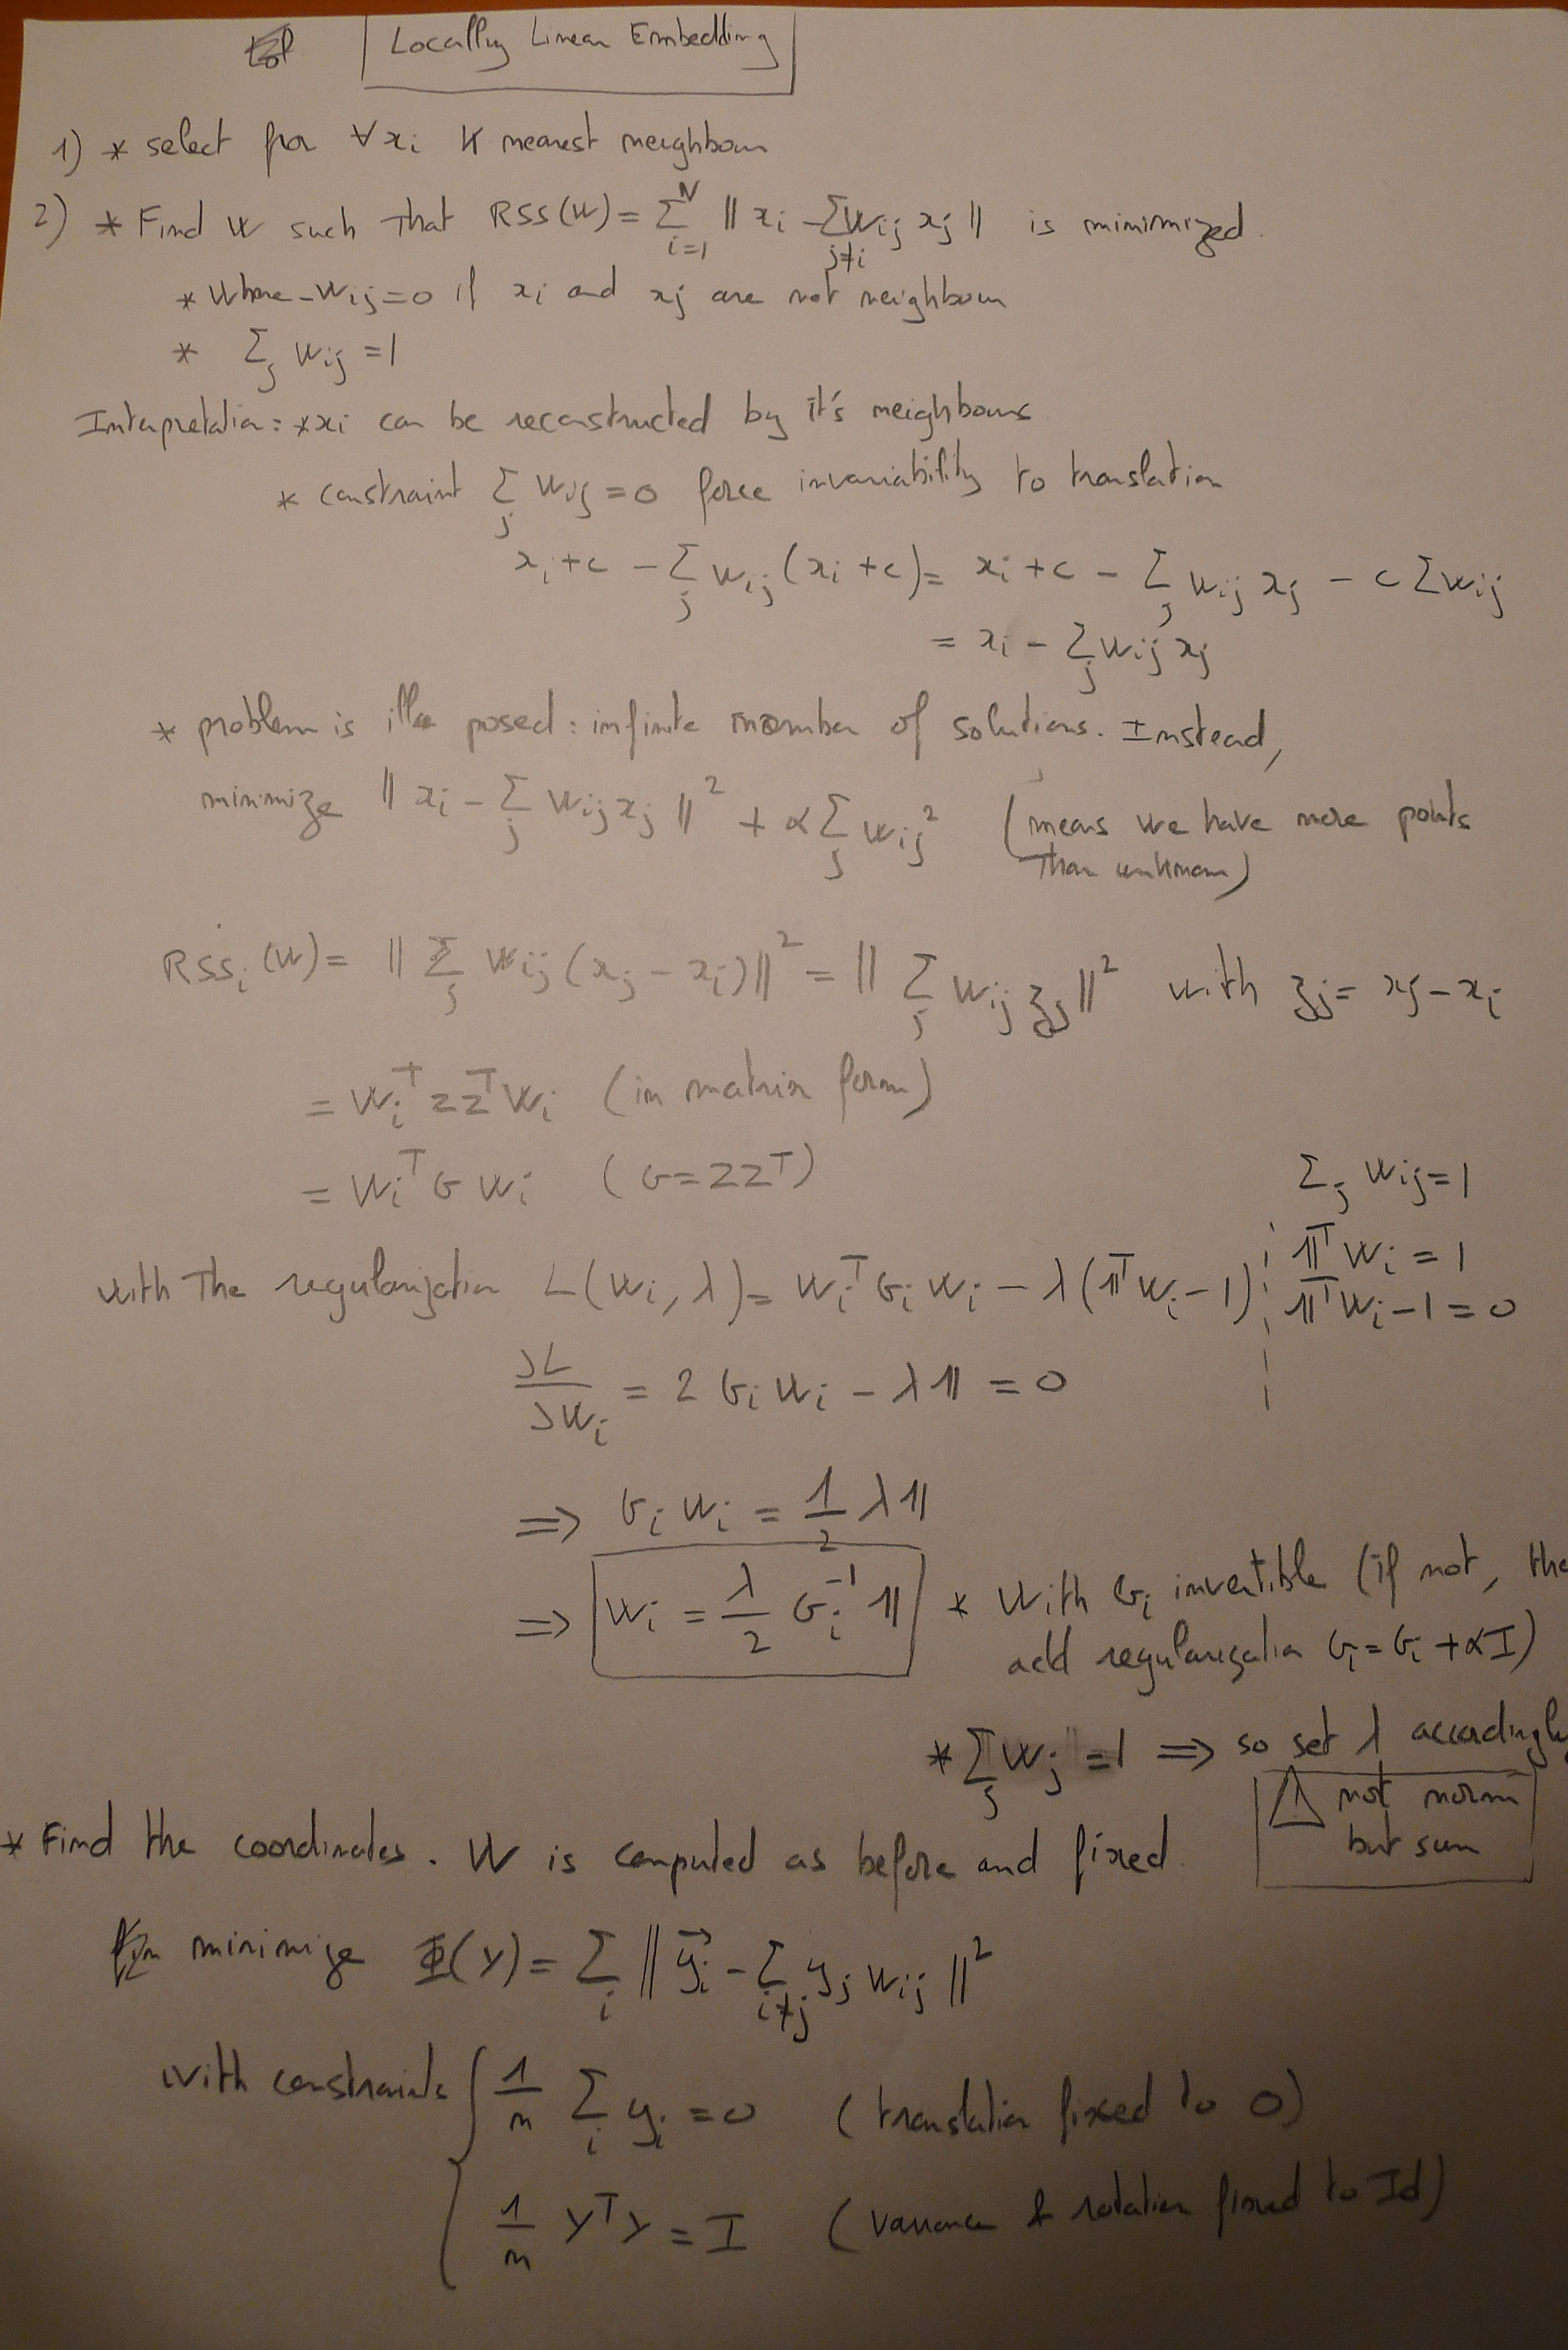 Locally Linear Embedding
1) * select for ∀xi K nearest neighbours
2) * Find W such that RSS(W) = Σ_{i=1}^{N} || xi - Σ_{j≠i} Wij xj || is minimized.
* Where - Wij = 0 if xi and xj are not neighbours
* Σ_j Wij = 1
Interpretation: * xi can be reconstructed by it's neighbours
* constraint Σ_j Wij = 0 force invariability to translation
xi + c - Σ_j Wij (xi + c) = xi + c - Σ_j Wij xj - c Σ Wij
= xi - Σ_j Wij xj
* problem is ill posed: infinite number of solutions. Instead,
minimize || xi - Σ_j Wij xj ||² + α Σ_j Wij² (means we have more points
than unknown)
RSSi (W) = || Σ_j Wij (xj - xi) ||² = || Σ_j Wij zj ||² with zj = xj - xi
= Wi^T z z^T Wi (in matrix form)
= Wi^T G Wi (G = ZZ^T)
Σ_j Wij = 1
𝟙^T Wi = 1
with the regularization L(Wi, λ) = Wi^T Gi Wi - λ(𝟙^T Wi - 1)
𝟙^T Wi - 1 = 0
∂L/∂Wi = 2 Gi Wi - λ 𝟙 = 0
⇒ Gi Wi = 1/2 λ 𝟙
⇒ Wi = λ/2 Gi^{-1} 𝟙 * With Gi invertible (if not, the
add regularization Gi = Gi + αI)
* Σ_j Wj = 1 ⇒ so set λ accordingly
⚠ not norm
but sum
* Find the coordinates. W is computed as before and fixed.
minimize Φ(Y) = Σ_i || y⃗i - Σ_{i≠j} yj Wij ||²
with constraints { 1/n Σ_i yi = 0 (translation fixed to 0)
1/n Y^T Y = I (variance & rotation fixed to Id)